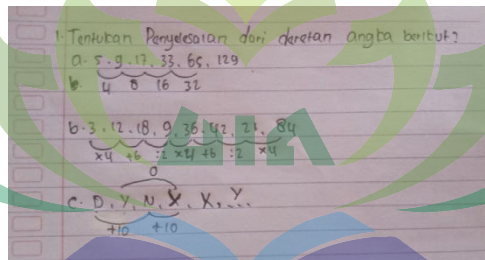 1. Tentukan Penyelesaian dari deretan angka berikut?
a. 5. 9. 17. 33. 65. 129
b. 4 8 16 32
b. 3. 12. 18. 9. 36. 42. 21. 84
x4 +6 :2 x4 +6 :2 x4
0
c. D. Y. N. X. X. Y...
+10 +10